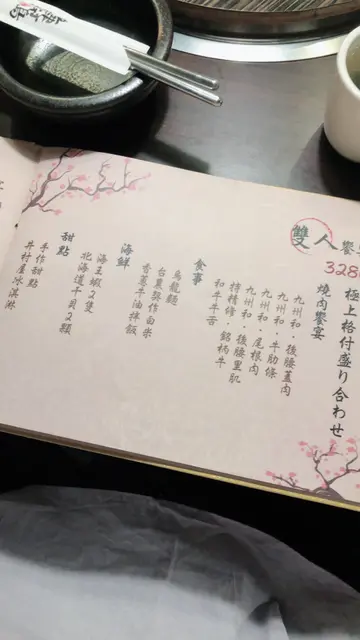 雙人饗
328
極上格付盛り合わせ
燒肉饗宴
九州和．後腰蓋肉
九州和．牛肋條
九州和．尾根肉
特精修．後腰里肌
和牛牛舌
食事
烏龍麵
台東契作白米
香蔥牛油拌飯
海鮮
海王蝦2隻
北海道干貝2顆
甜點
手作甜點
井村屋冰淇淋